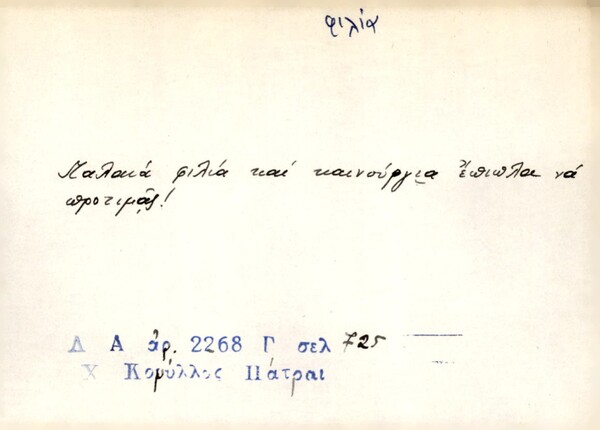 φιλία
Παλαιά φιλία καί καινούργια ἔπιπλα νά
προτιμᾶς!
Λ Α ἀρ. 2268 Γ σελ 725
Χ Κορύλλος Πάτραι